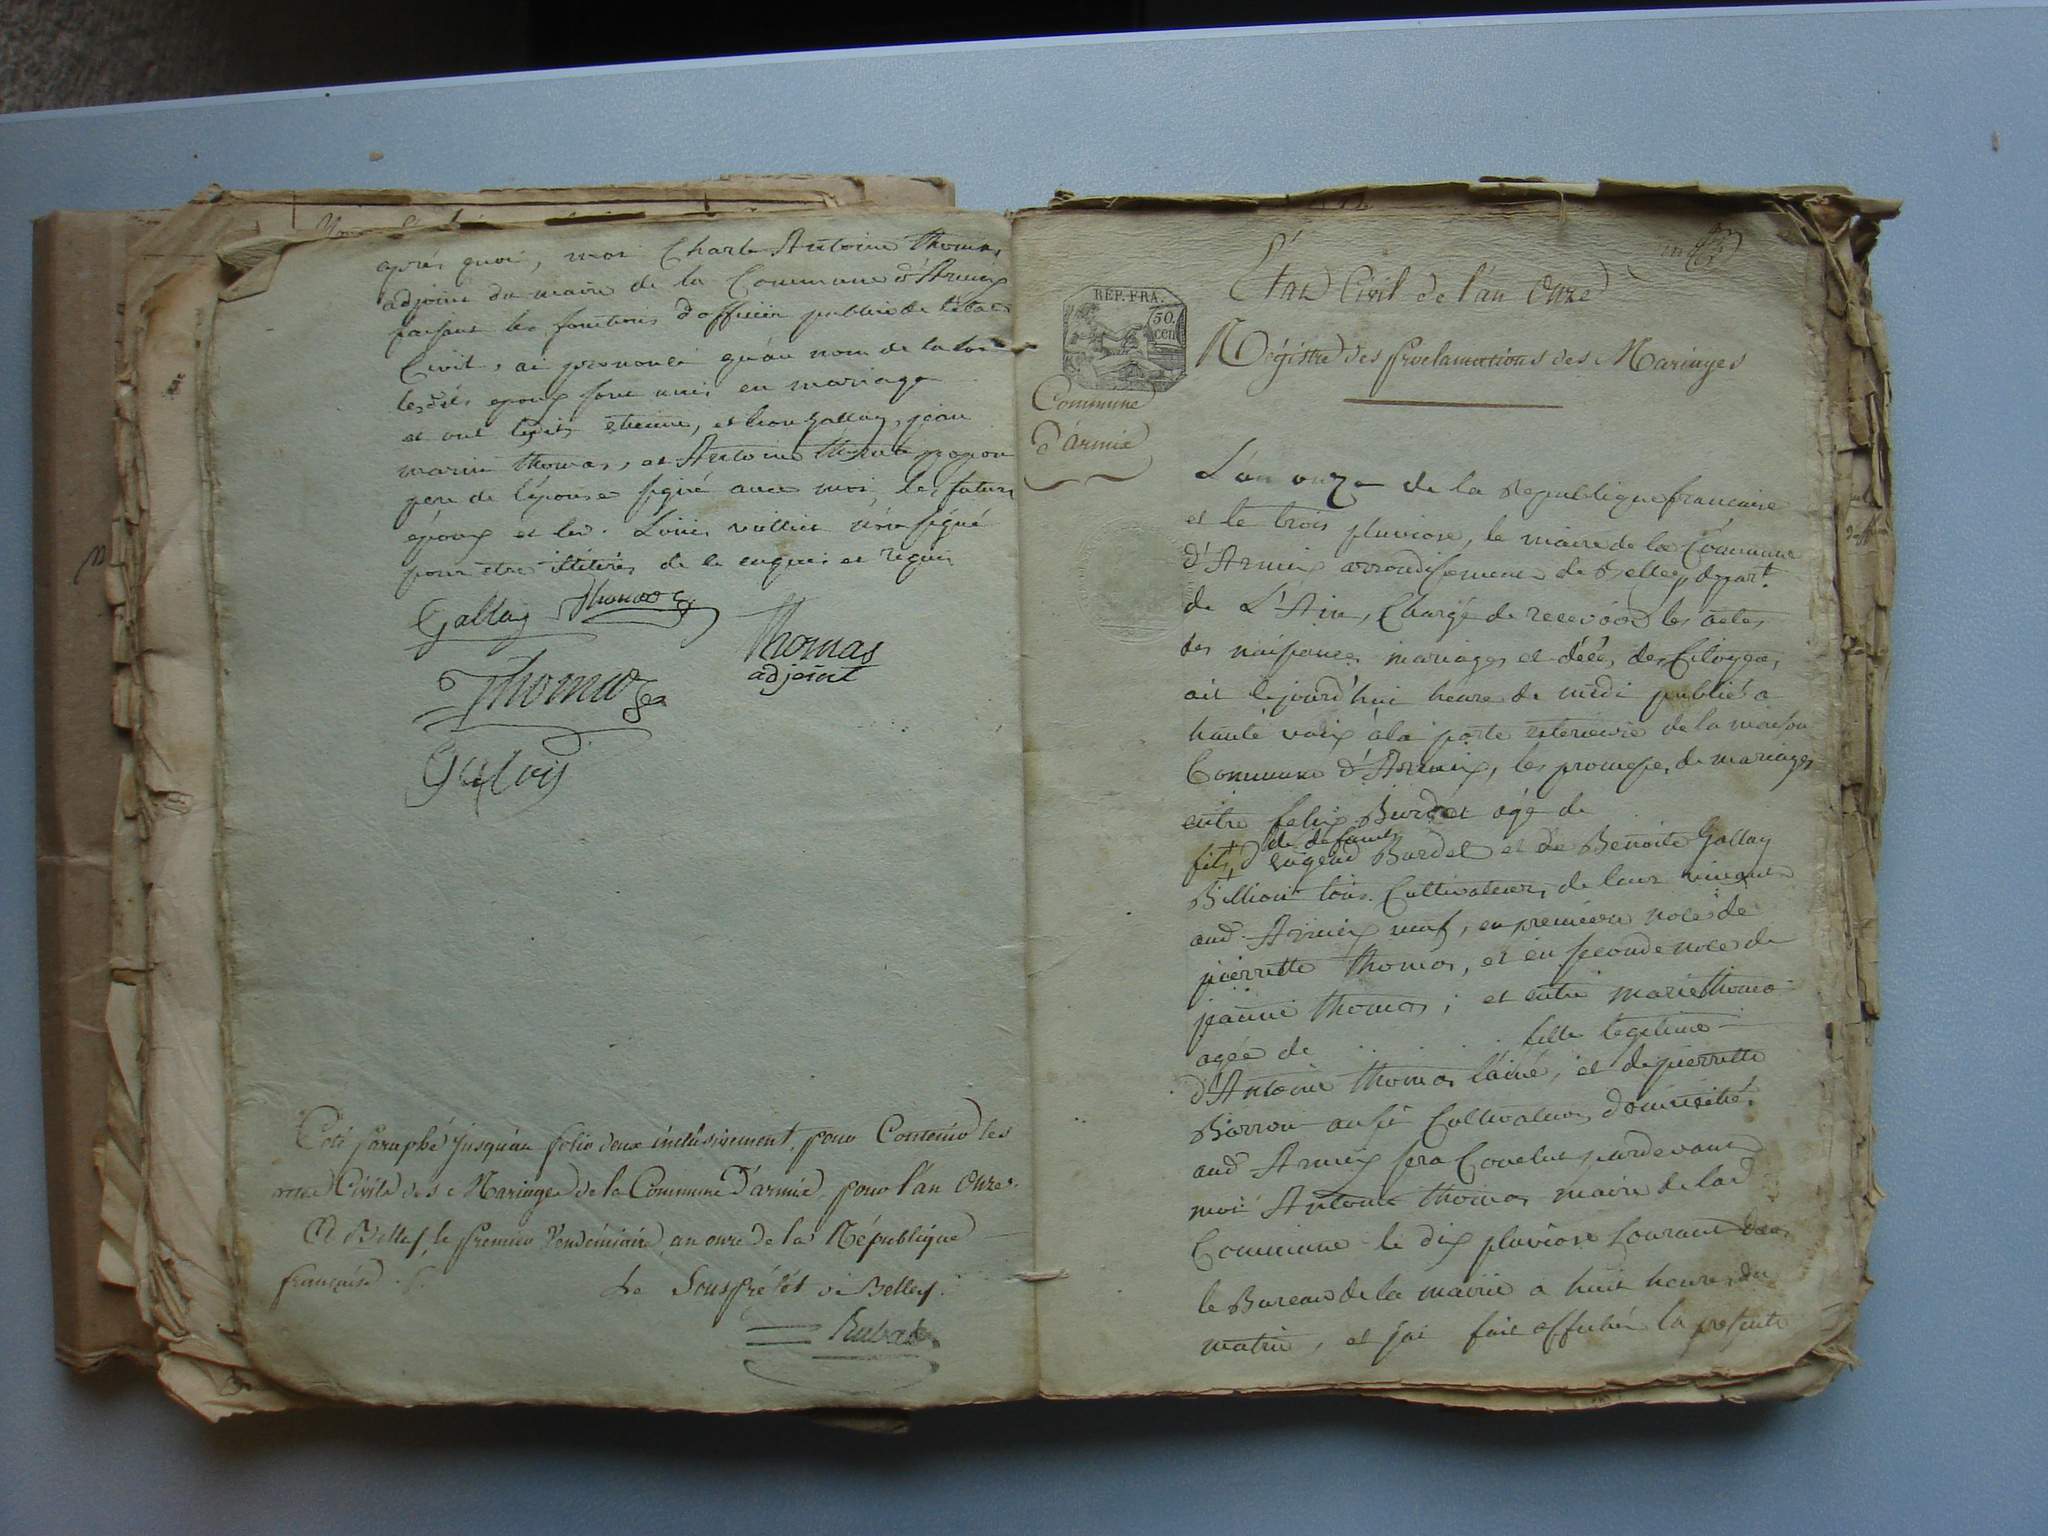 après quoi, moi Charle Antoine Thomas
adjoint du maire de la Commune d'Armix
faisant les fonctions d'officier public de l'état
Civil, ai prononcé qu'au nom de la loi
lesdits epoux sont unis en mariage
et ont etienne, et Gallay, jean
marin thomas, et Antoine
pere de l'épouse signé avec moi, les futurs
époux et led. Louis n'ont signé
pour etre illitérés de ce enquis et requis
Gallay Thomas
Thomas
adjoint
Thomas
Coté paraphé jusqu'au folio deux inclusivement, pour Contenir les
actes Civils des Mariages de la Commune D'armix pour l'an Onze.
A Belley, le premier Vendémiaire, an onze de la République
française.
Le Souspréfét de Belley.
Rubat
Etat Civil de l'an Onze
REP. FRA.
50.
cent
Régistre des Proclamations des Mariages
Commune
d'Armix
L'an onze de la Republique francaise
et le trois pluviose, le maire de la Commune
d'Armix arrondisement de Belley, depart.t
de L'Ain, Chargé de recevoir les actes
des naisances mariages et décés des Citoyens,
ait cejourd'hui heure de midi publié a
haute voix à la porte exterieure de la maison
Commune d'Armix, les promesses de mariages
entre felix Burdet agé de
fils de defunt
Eugend Burdet et de Benoite Gallay
Billion tous Cultivateurs de leur vivant
aud. Armix veuf, en premiere noce de
pierrette Thomas, et en seconde noce de
jeanne thomas; et entre marie thomas
agée de . . . . fille legitime
d'Antoine thomas l'ainé, et de pierrette
Borron aussi Cultivateurs domicilié
aud. Armix sera Conclue pardevant
moi Antoine thomas maire de lad.
Commune le dix pluviose Courant dans
le Bureau de la mairie a huit heures du
matin, et j'ai fait afficher la presente